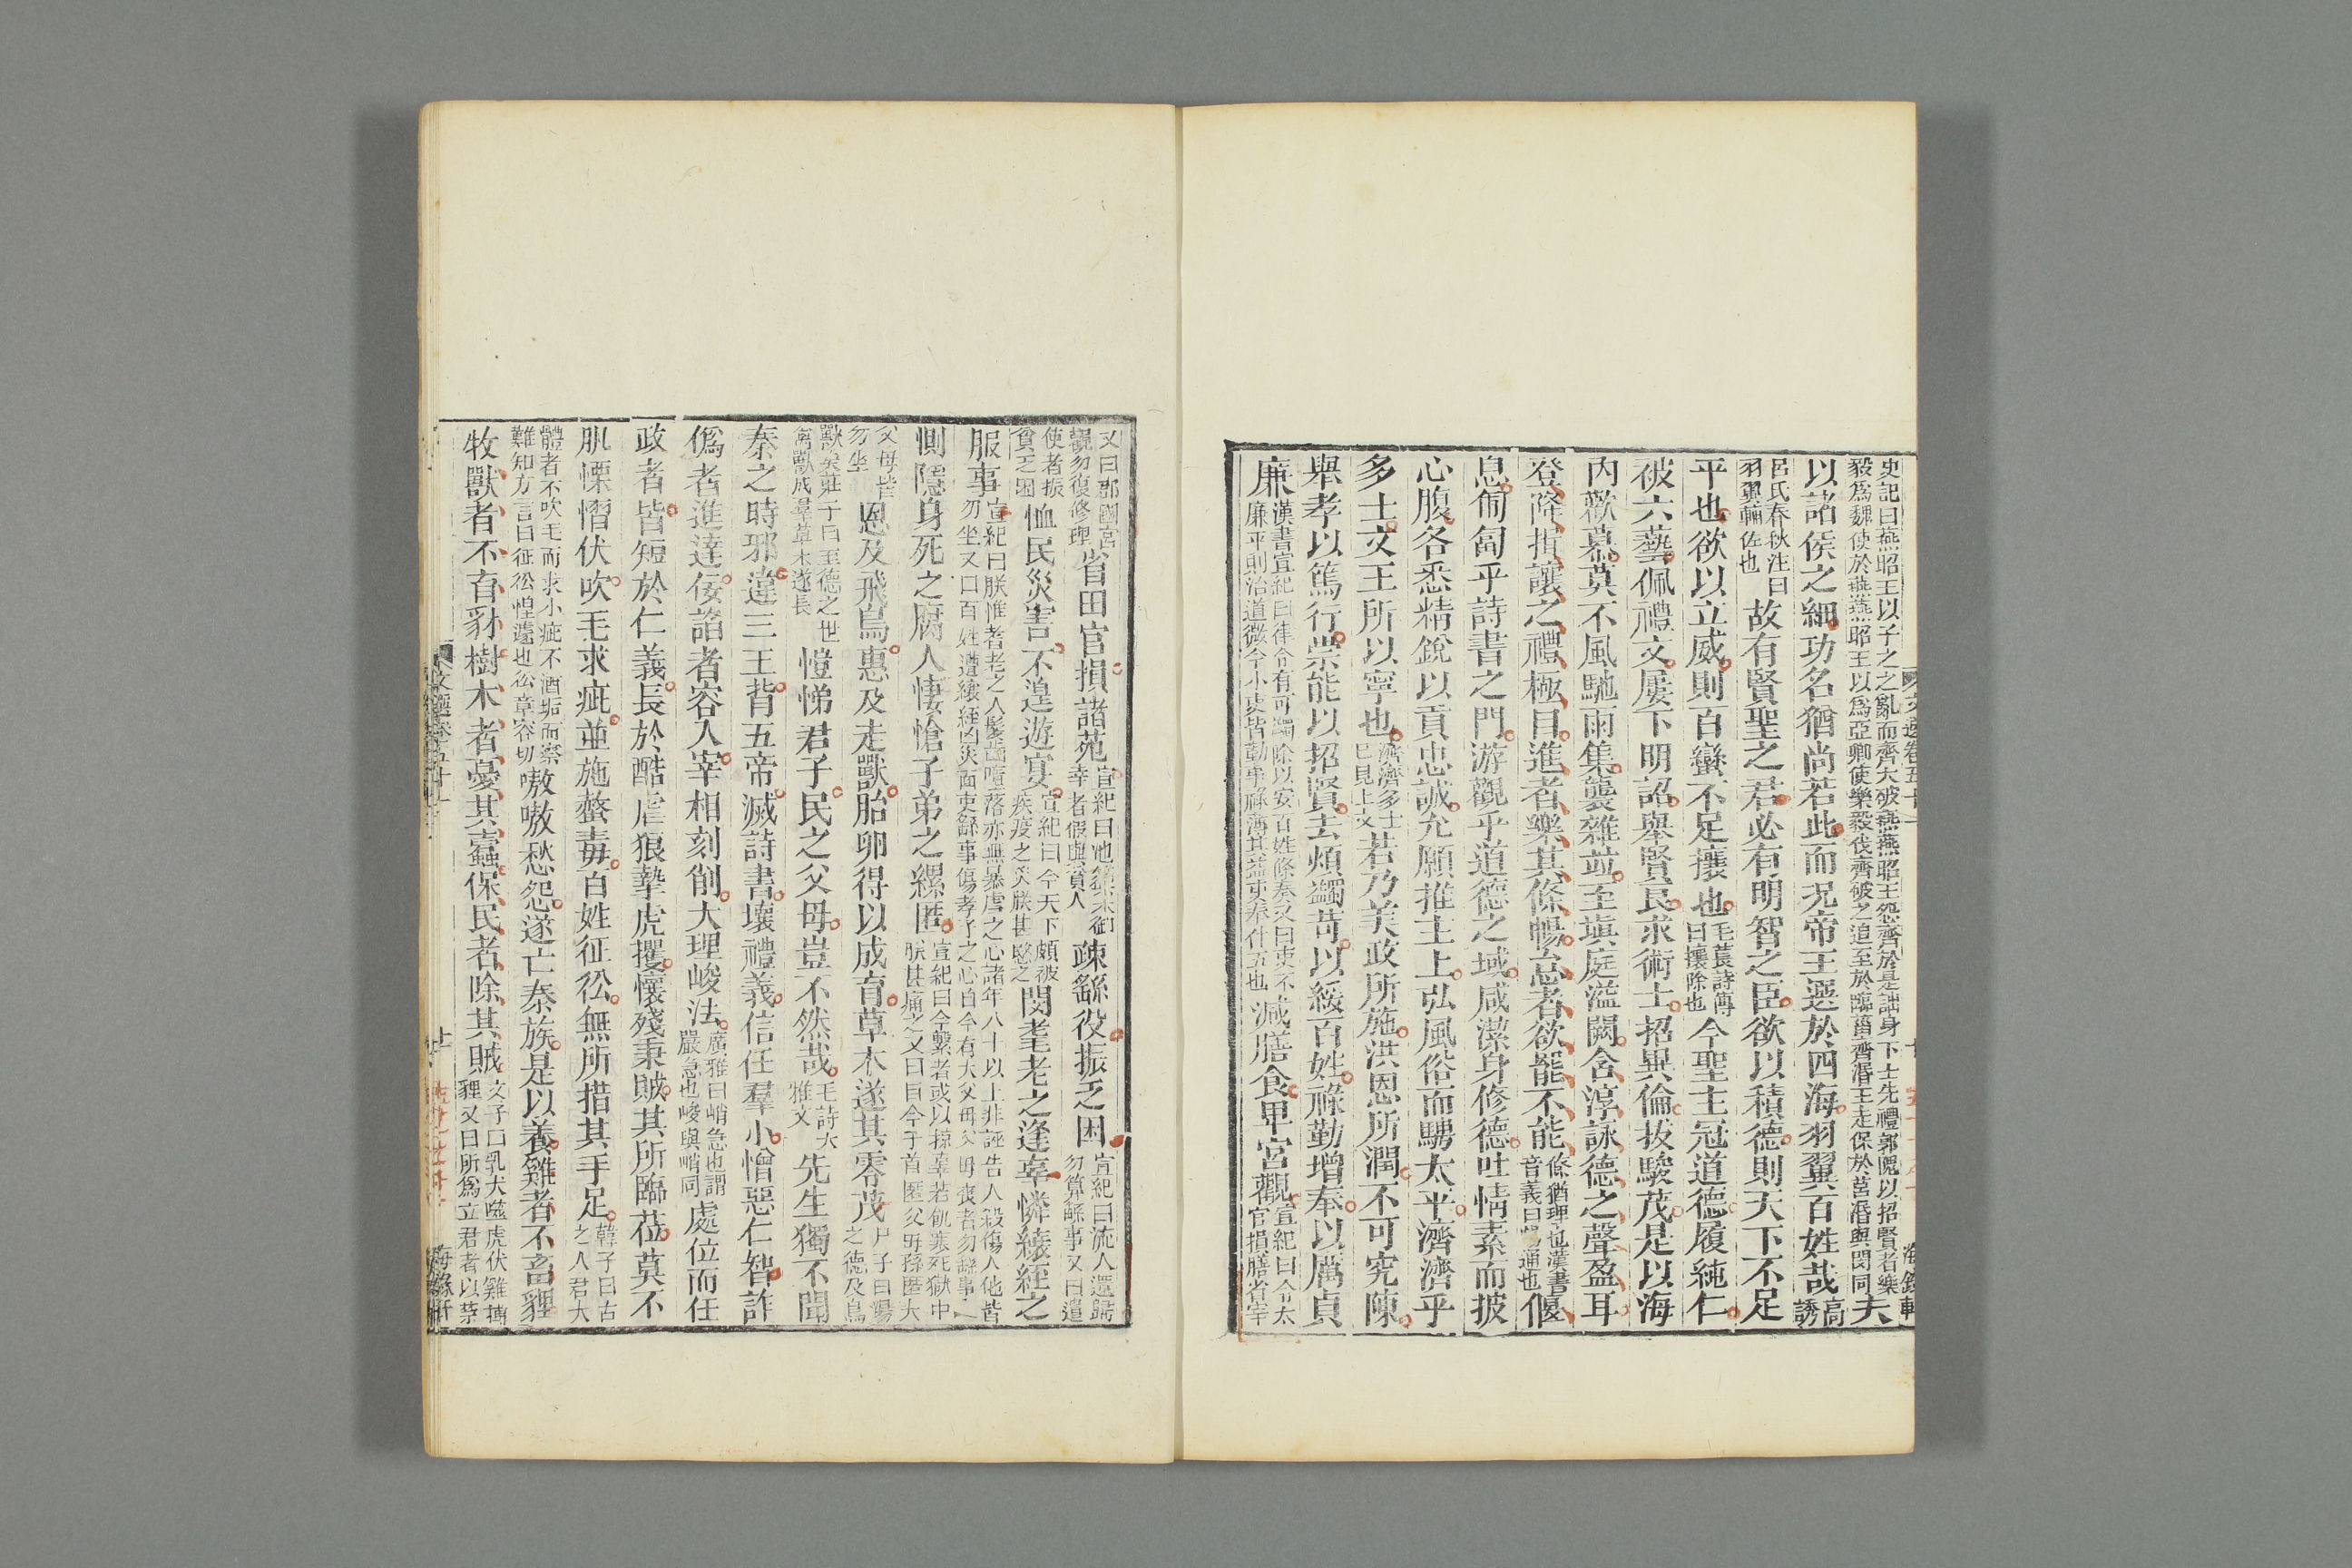 史記曰燕昭王以子之之亂而齊大破燕燕昭王怨齊於是詘身下士先禮郭隗以招賢者樂
毅爲魏使於燕燕昭王以爲亞卿使樂毅伐齊破之追至於臨菑齊湣王走保於莒湣與閔同夫
以諸侯之細功名猶尚若此而況帝王選於四海羽翼百姓哉高誘
呂氏春秋注曰羽翼輔佐也故有賢聖之君必有明智之臣欲以積德則天下不足
平也欲以立威則百蠻不足攘也毛萇詩傳曰攘除也今聖主冠道德履純仁
被六藝佩禮文屢下明詔舉賢良求術士招異倫拔駿茂是以海
內歡慕莫不風馳雨集襲雜並至塡庭溢闕含淳詠德之聲盈耳
登降揖讓之禮極目進者樂其條暢怠者欲罷不能條猶理也漢書音義曰暢通也偃
息匍匐乎詩書之門游觀乎道德之域咸潔身修德吐情素而披
心腹各悉精銳以貢忠誠允願推主上弘風俗而騁太平濟濟乎
多士文王所以寧也濟濟多士已見上文若乃美政所施洪恩所潤不可究陳
舉孝以篤行崇能以招賢去煩蠲苛以綏百姓祿勤增奉以厲貞
廉漢書宣紀曰律令有可蠲除以安百姓條奏又曰吏不廉平則治道微今小吏皆勤事祿薄其益吏奉什五也減膳食卑宮觀宣紀曰令太官損膳省宰
又曰郡國宮觀勿復修理省田官損諸苑宣紀曰池籞未御幸者假與貧人疎繇役振乏困宣紀曰流人還歸勿算繇事又曰遣
使者振貧乏困恤民災害不遑遊宴宣紀曰今天下頗被疾疫之災朕甚愍之閔耄老之逢辜憐縗絰之
服事宣紀曰朕惟耆老之人髮齒墮落亦無暴虐之心諸年八十以上非誣告人殺傷人他皆勿坐又曰百姓遭縗絰凶災而吏繇事傷孝子之心自今有大父母父母喪者勿繇事
惻隱身死之腐人悽愴子弟之縲匿宣紀曰今繫者或以掠辜若飢寒死獄中朕甚痛之又曰自今子首匿父母孫匿大
父母皆勿坐恩及飛鳥惠及走獸胎卵得以成育草木遂其零茂尸子曰湯之德及鳥
獸矣莊子曰至德之世禽獸成羣草木遂長愷悌君子民之父母豈不然哉毛詩大雅文先生獨不聞
秦之時邪違三王背五帝滅詩書壞禮義信任羣小憎惡仁智詐
僞者進達佞諂者容入宰相刻削大理峻法廣雅曰峭急也謂嚴急也峻與峭同處位而任
政者皆短於仁義長於酷虐狼摯虎攫懷殘秉賊其所臨莅莫不
肌慄慴伏吹毛求疵並施螫毒百姓征彸無所措其手足韓子曰古之人君大
體者不吹毛而求小疵不洒垢而察難知方言曰征彸惶遽也彸章容切嗷嗷愁怨遂亡秦族是以養雞者不畜貍
牧獸者不育豺樹木者憂其蠹保民者除其賊文子曰乳犬噬虎伏雞搏貍又曰所爲立君者以禁
文選卷五十一
十
海錄軒